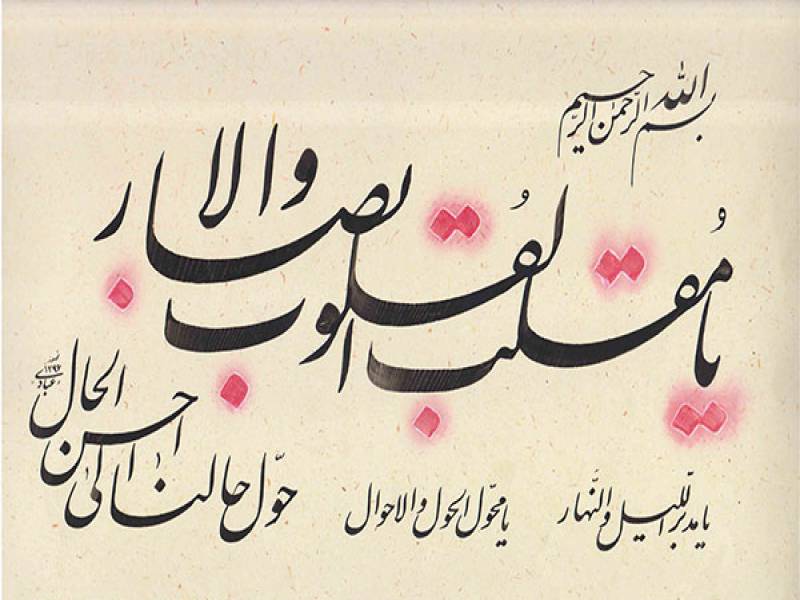 بسم الله الرحمن الرحیم
یا مُقلب القُلوب والابصار
یا مدبّر اللیل والنّهار
یا محوّل الحول والاحوال
حوّل حالنا الیٰ احسن الحال
عبادی ۱۳۹۶